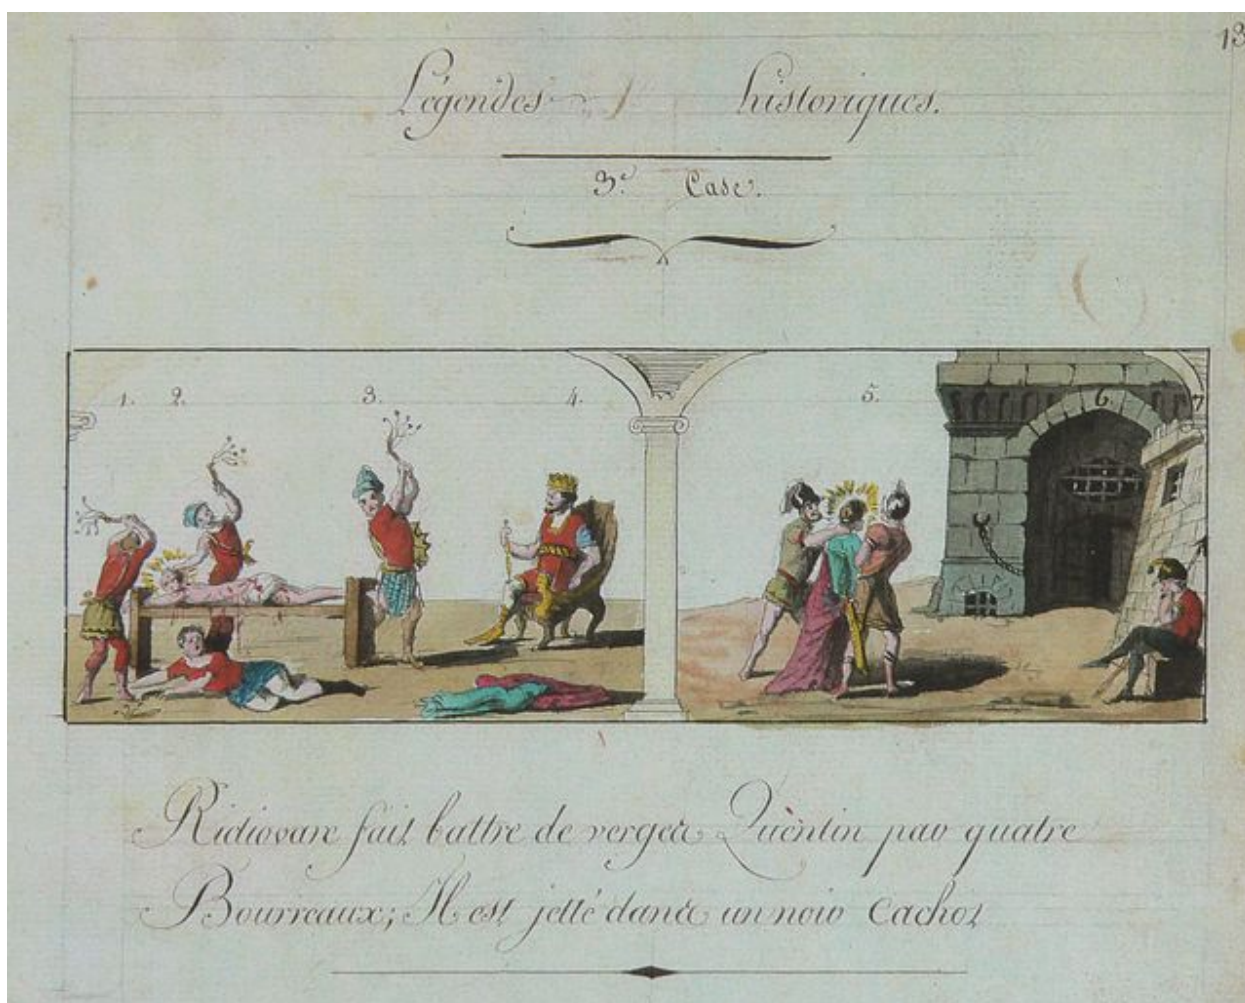 13
Légendes historiques.
3e. Case.
1. 2. 3. 4. 5. 6. 7
Rictiovare fait battre de verges Quèntin par quatre
Bourreaux; Il est jetté dans un noir Cachot